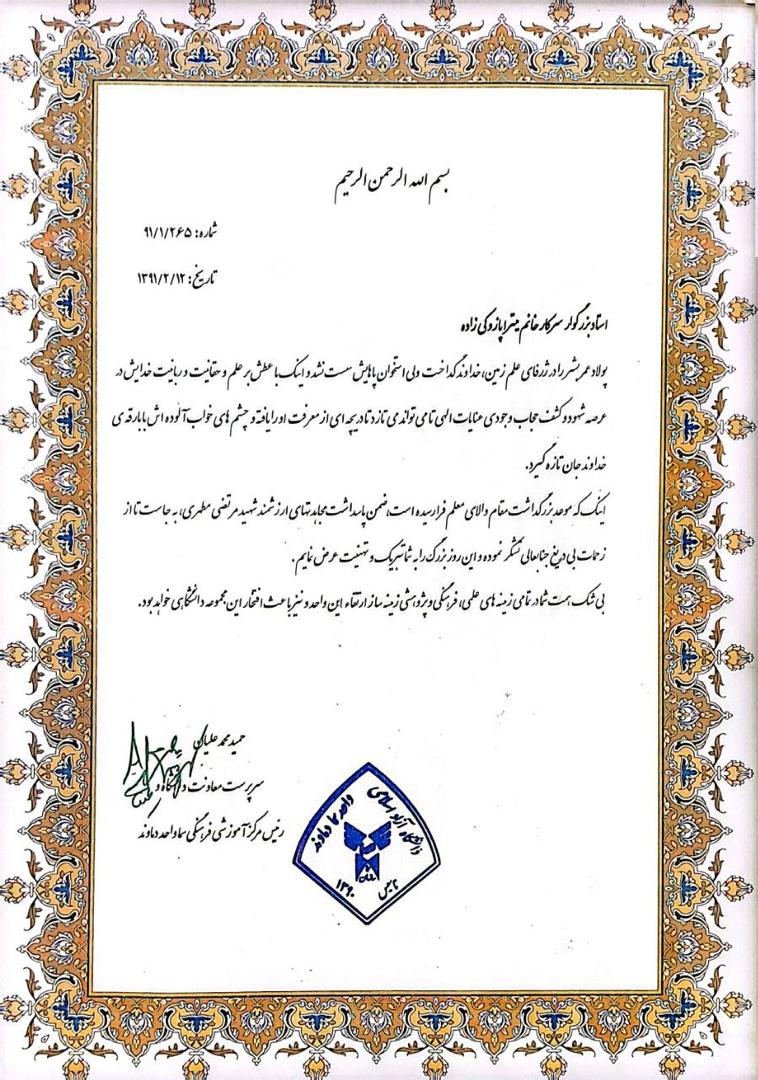 بسم الله الرحمن الرحیم
شماره: ۹۱/۱/۲۶۵
تاریخ: ۱۳۹۱/۲/۱۲
استاد بزرگوار سرکار خانم میترا پازوکی زاده
پولاد عمر بشر را در ژرفای علم زمین، خداوند گداخت ولی استخوان پاهایش سست نشد و اینک با عطش بر علم و حقانیت و ربانیت خدایش در
عرصه شهود و کشف حجاب وجودی عنایات الهی تا می تواند می تازد تا دریچه ای از معرفت او را یافته و چشم های خواب آلوده اش با بارقه ی
خداوند جان تازه گیرد.
اینک که موعد بزرگداشت مقام والای معلم فرا رسیده است، ضمن پاسداشت مجاهدتهای ارزشمند شهید مرتضی مطهری، به جاست تا از
زحمات بی دریغ جنابعالی تشکر نموده و این روز بزرگ را به شما تبریک و تهنیت عرض نمایم.
بی شک همت شما در تمامی زمینه های علمی، فرهنگی و پژوهشی زمینه ساز ارتقاء این واحد و نیز باعث افتخار این مجموعه دانشگاهی خواهد بود.
حمید محمد علیان
سرپرست معاونت دانشگاه و
رئیس مرکز آموزشی فرهنگی سما واحد دماوند
دانشگاه آزاد اسلامی
واحد سما دماوند
تاسیس ۱۳۹۰